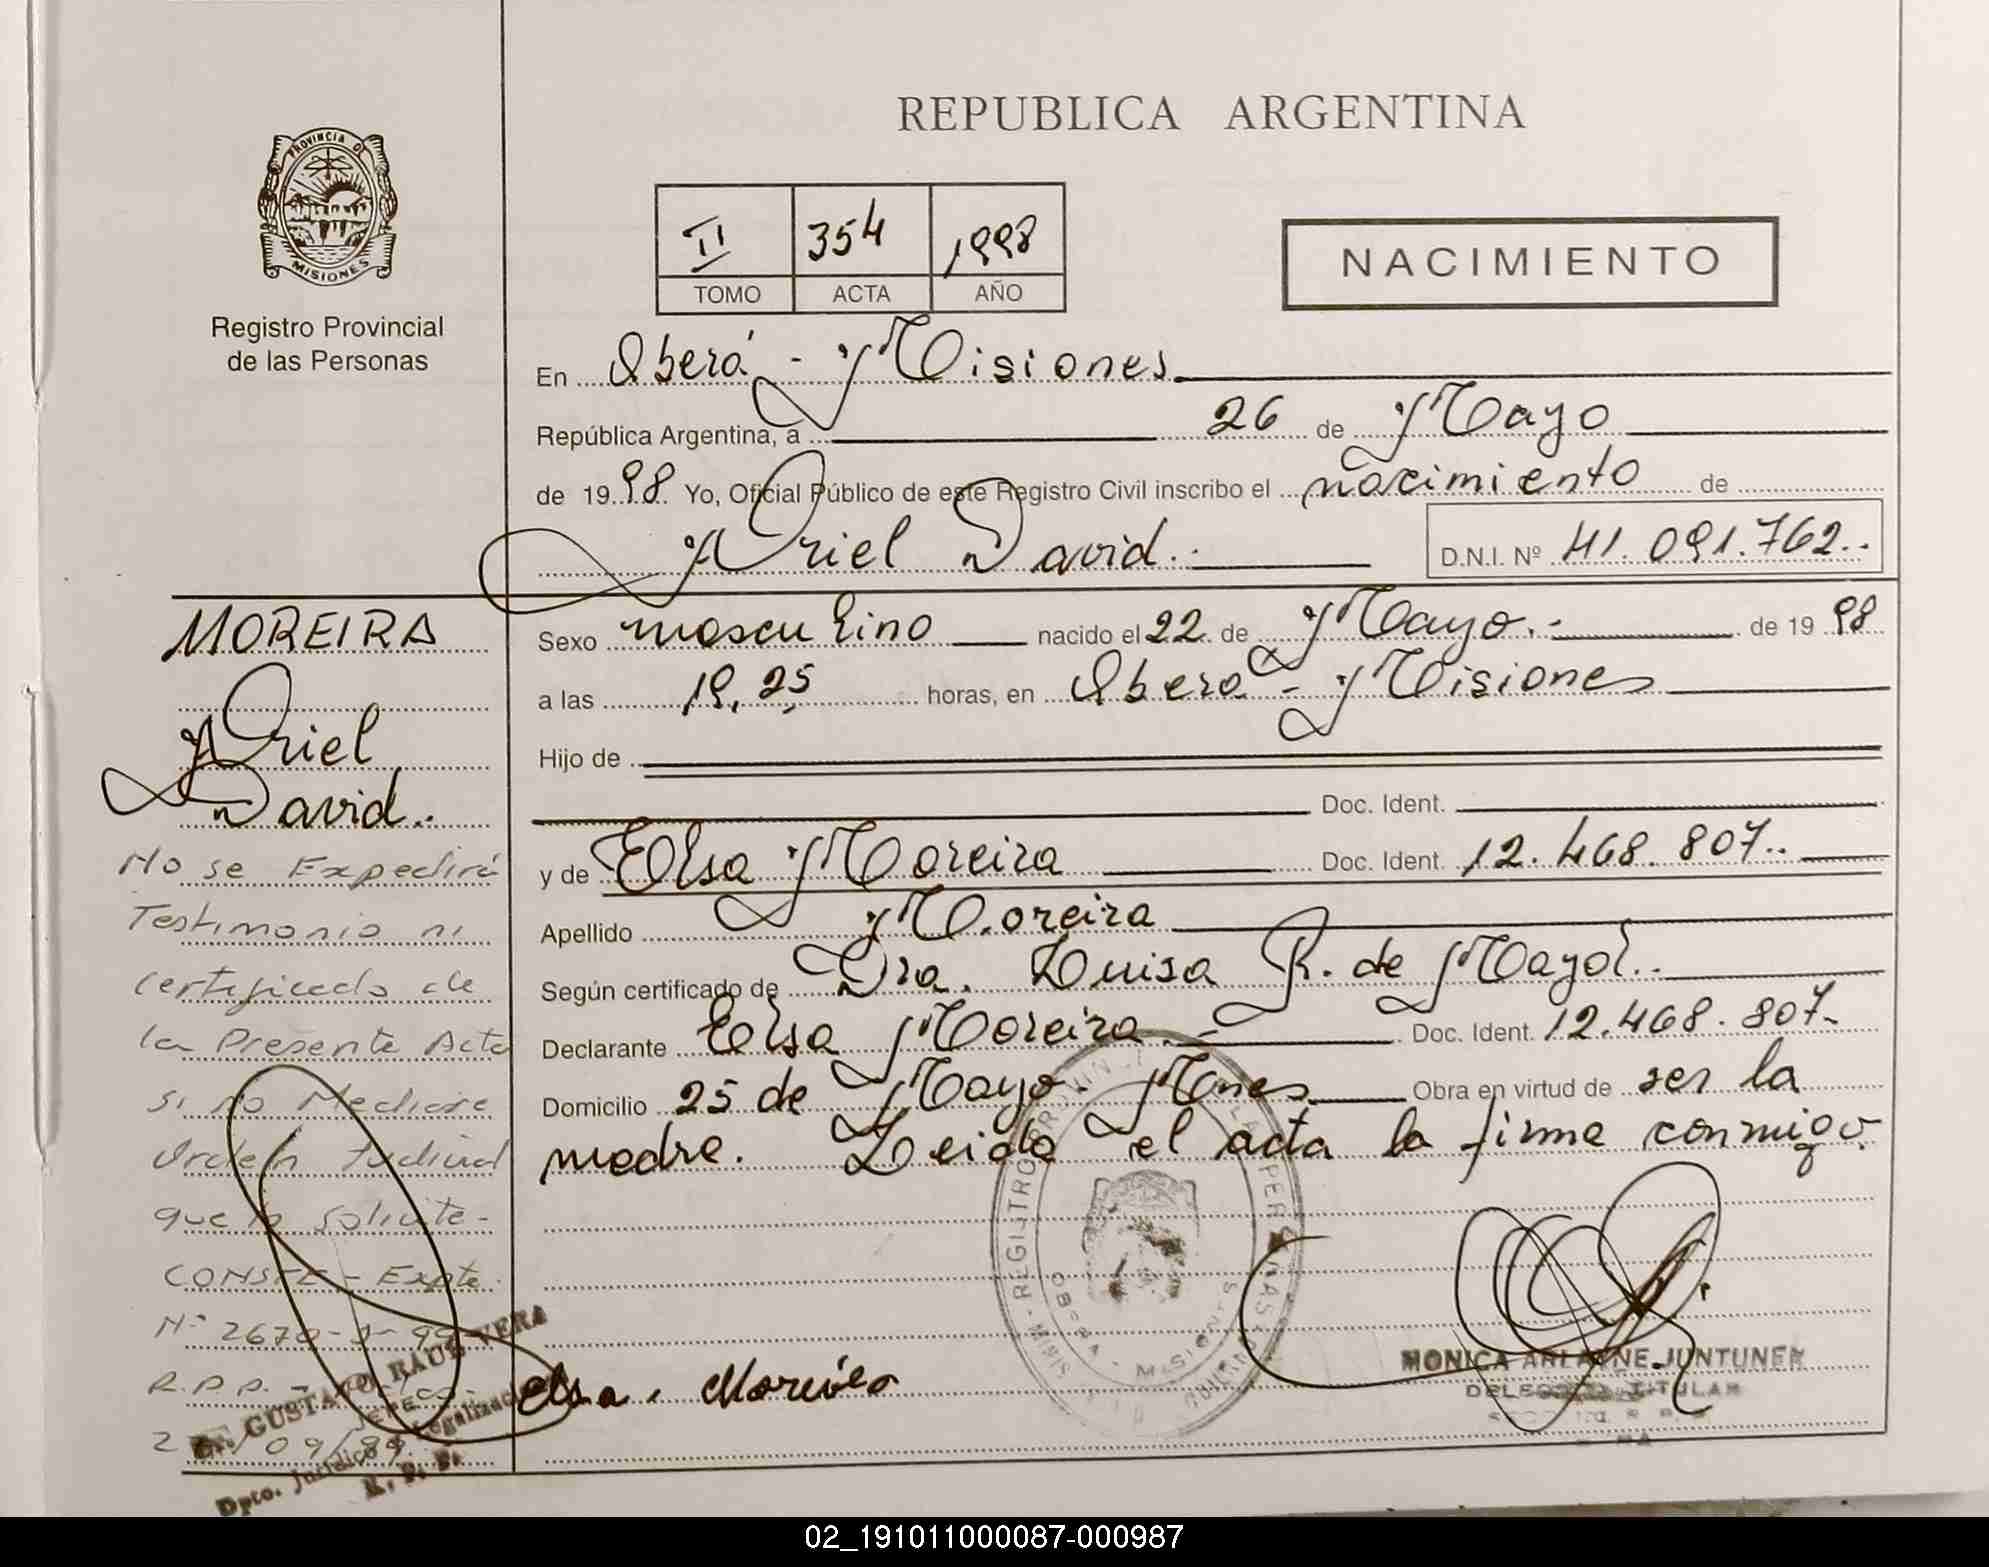 REPUBLICA ARGENTINA
PROVINCIA DE
MISIONES
Registro Provincial
de las Personas
II 354 1998
TOMO ACTA AÑO
NACIMIENTO
En Oberá - Misiones
República Argentina, a 26 de Mayo
de 1998 Yo, Oficial Público de este Registro Civil inscribo el nacimiento de
Ariel David.- D.N.I. Nº 41.091.762..
MOREIRA
Ariel
David.-
No se Expedirá
Testimonio ni
certificado de
la Presente Acta
si no Mediare
Orden Judicial
que lo solicite-
CONSTE - Expte.
Nº 2670- -99
R.P.P.-
2 /09/99.
GUSTAVO RAUL VERA
JEFE
Dpto. Jurídico Legalizac
R. P. P.
Sexo masculino nacido el 22 de Mayo.- de 1998
a las 19,25 horas, en Oberá - Misiones
Hijo de
Doc. Ident.
y de Elsa Moreira Doc. Ident. 12.468.807..
Apellido Moreira
Según certificado de Dra. Luisa R. de Mayol.-
Declarante Elsa Moreira.- Doc. Ident. 12.468.807-
Domicilio 25 de Mayo- Mnes. Obra en virtud de ser la
madre. Leida el acta la firma conmigo.
REGISTRO PROVINCIAL DE LAS PERSONAS
OBERA - MISIONES
Elsa. Moreira
MONICA ARIANNE JUNTUNEN
DELEGADA TITULAR
02_191011000087-000987